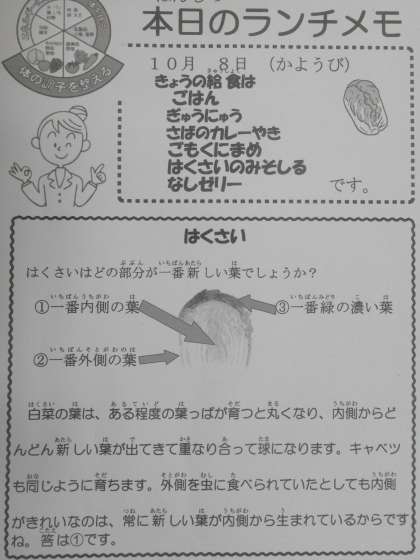 本日のランチメモ
体の調子を整える
10月 8日 (かようび)
きょうの給食は
ごはん
ぎゅうにゅう
さばのカレーやき
ごもくにまめ
はくさいのみそしる
なしゼリー です。
はくさい
はくさいはどの部分が一番新しい葉でしょうか?
①一番内側の葉
③一番緑の濃い葉
②一番外側の葉
白菜の葉は、ある程度の葉っぱが育つと丸くなり、内側からど
んどん新しい葉が出てきて重なり合って球になります。キャベツ
も同じように育ちます。外側を虫に食べられていたとしても内側
がきれいなのは、常に新しい葉が内側から生まれているからです
ね。答は①です。